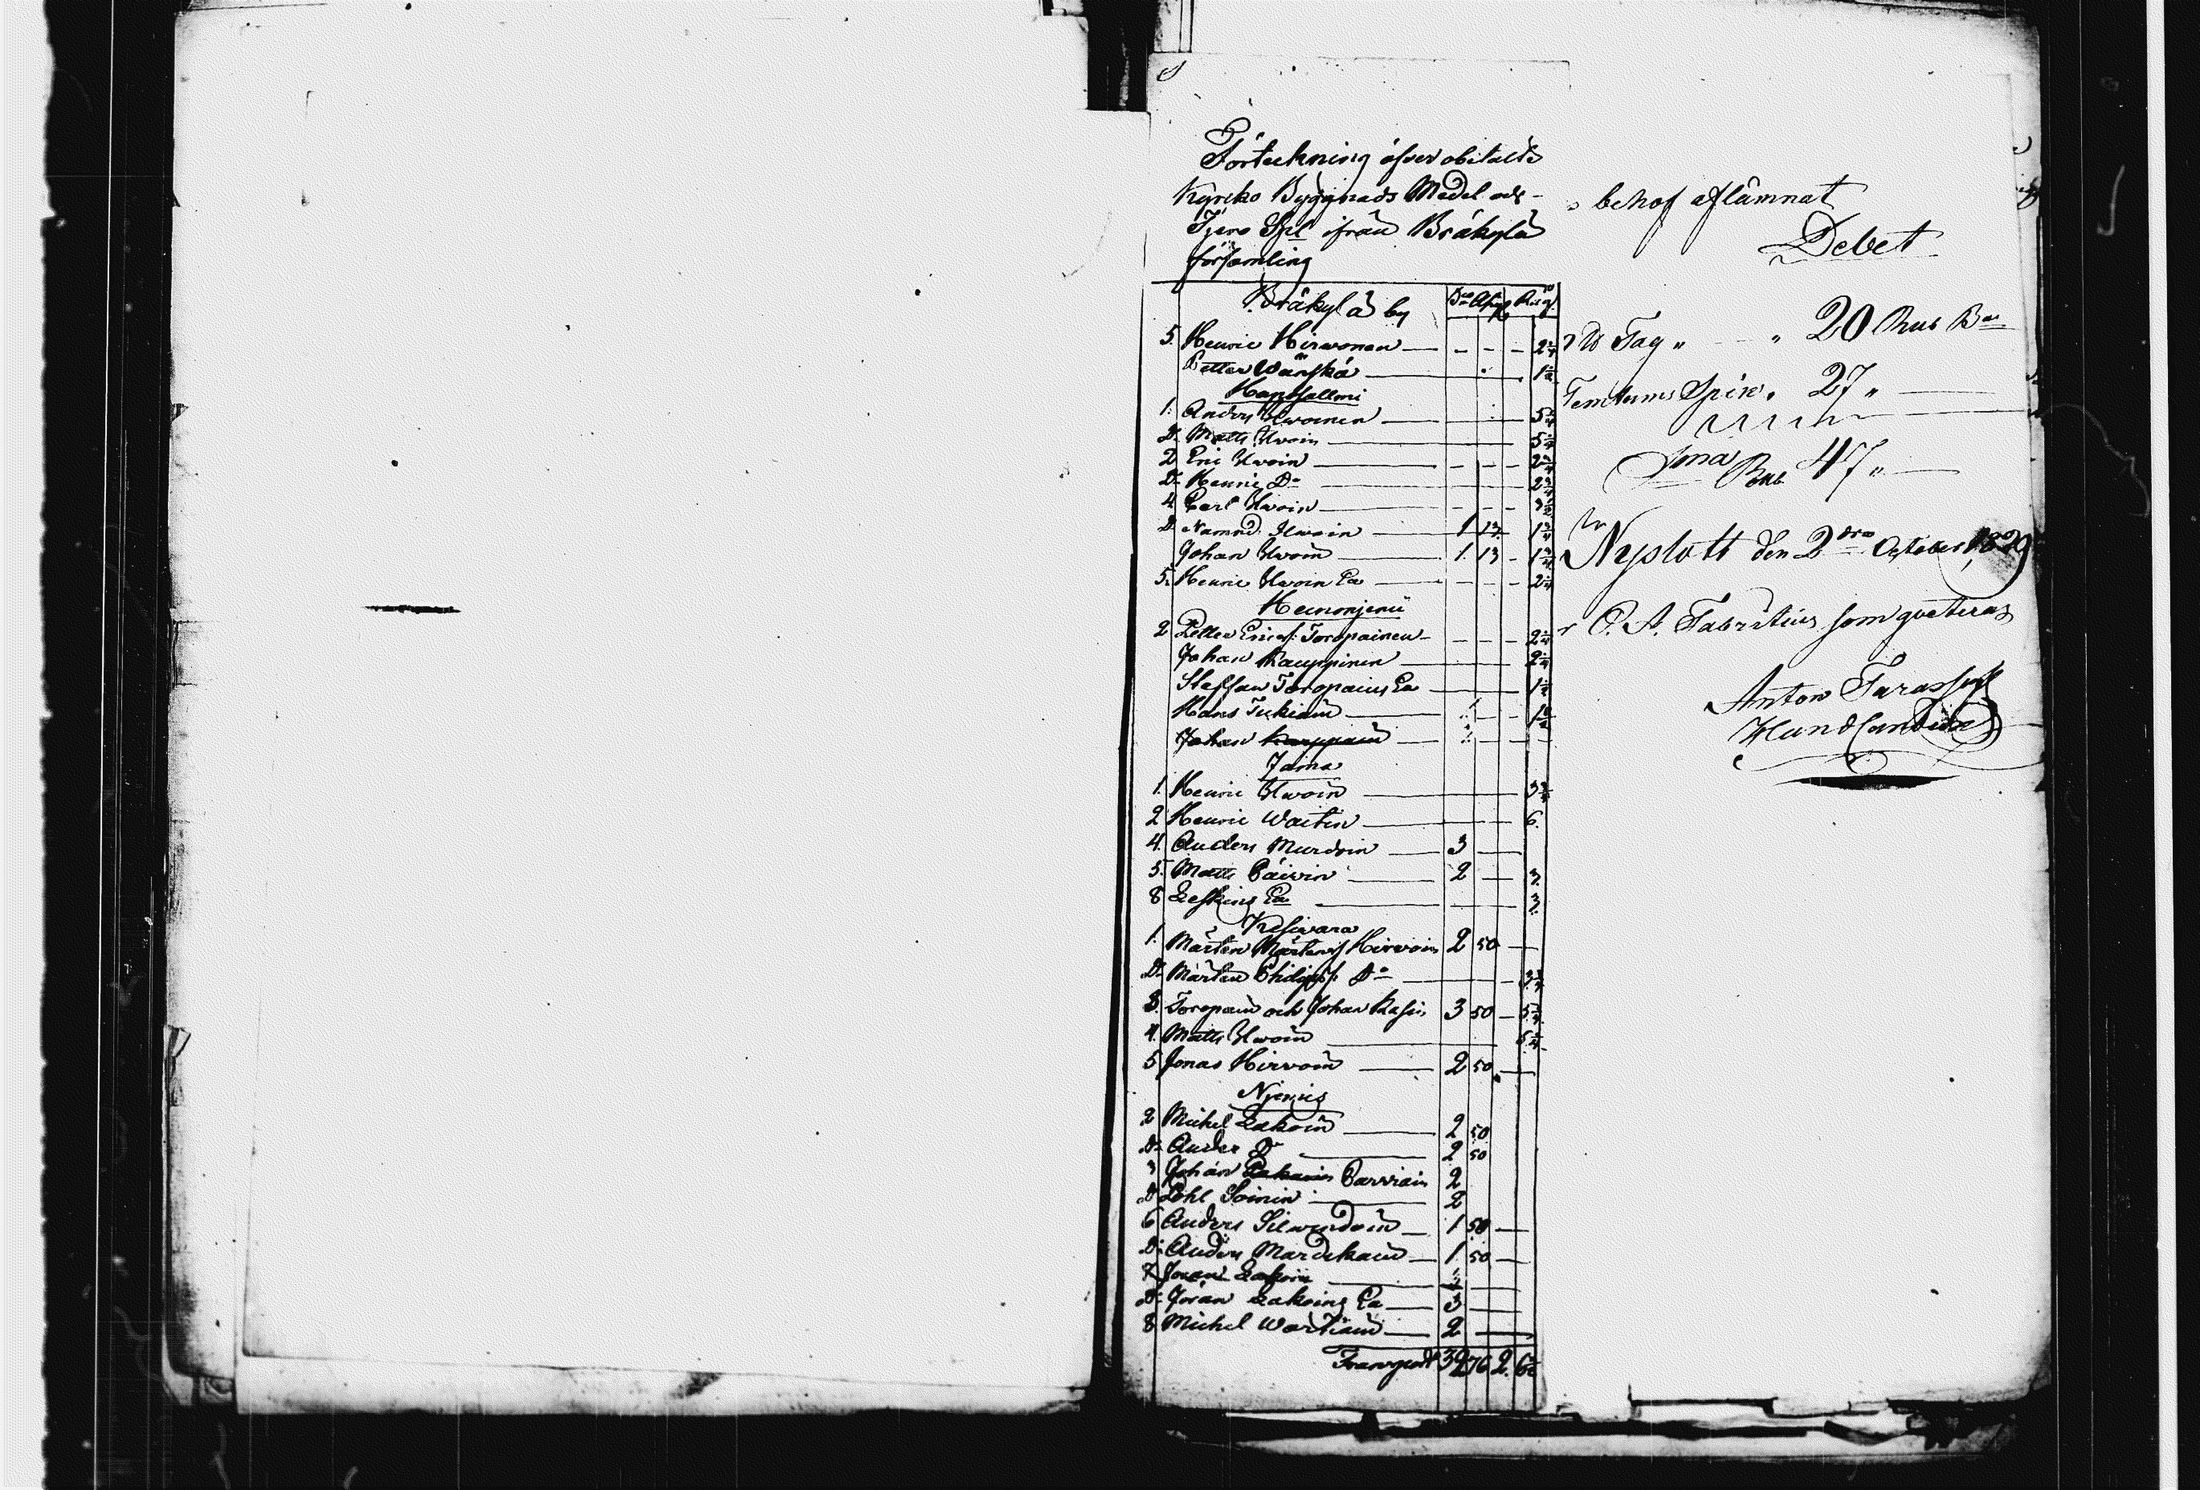 Förteckning öfver obetalte
Kyrcko Byggnads Medel och
Tjenst Spl ifrån Bräkylä
församling
Bräkylä by
5. Henric Hirvonen — 2¼
Petter Wänskä — 1½
Handsallmi
1. Anders Ilvoinen — 5¼
Do Matts Ilvoin — 5¼
2 Eric Ilvoin — 2¼
Do Henric Do — 2¾
4 Carl Ilvoin — 3½
Do Ilvoin — 1 13 — 1¾
Johan Ilvoin — 1 13 — 1¾
5. Henric Ilvoin Ea — 2¼
Heinonjemi
2 Petter Ericss: Toropainen — 2¼
Johan Kauppinen — 2¼
Steffan Toropains Ea — 1½
Hans Tukiain — 1½
Johan Kauppain
Jama
1. Henric Ilvoin — 3¾
2 Henric Waitin — 6.
4. Anders Murdoin — 3 —
5. Matts Päivin — 2 — 3.
8 Leskins Ea — 3.
Kesivara
1. Mårten Mårtenss Hirvoin 2 50 —
Do Mårten Philipss: Do — 3¾
3. Toropain och Johan Kasin 3 50 — 5¾
4. Matts Ilvoin — 5¼
5 Jonas Hirvoin — 2 50 —
Njemis
2 Michel Lakoin — 2 50
Do Anders Do — 2 50
3 Johan Parviain 2
Do Påhl Soinin — 2
6 Anders Silvendoin — 1 50 —
Do Anders Mardikain — 1 50 —
7 Jöran Lakoin
Do Jöran Lakoins Ea — 3 —
8 Michel Wartiain — 2 —
Transport 32 76 2. 6½
behof aflämnat
Debet
Tag „ — „ 20 Rub Bco
Femtums Spik „ 27 „ —
Suma Rub 47 „ —
Nyslott den 2dra October 1829
C. A. Fabritius som qvitteras
Anton Tarassoff